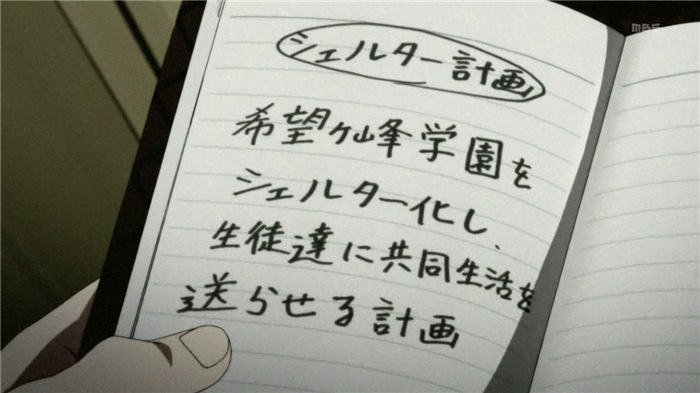 MBS
シェルター計画
希望ヶ峰学園を
シェルター化し、
生徒達に共同生活を
送らせる計画